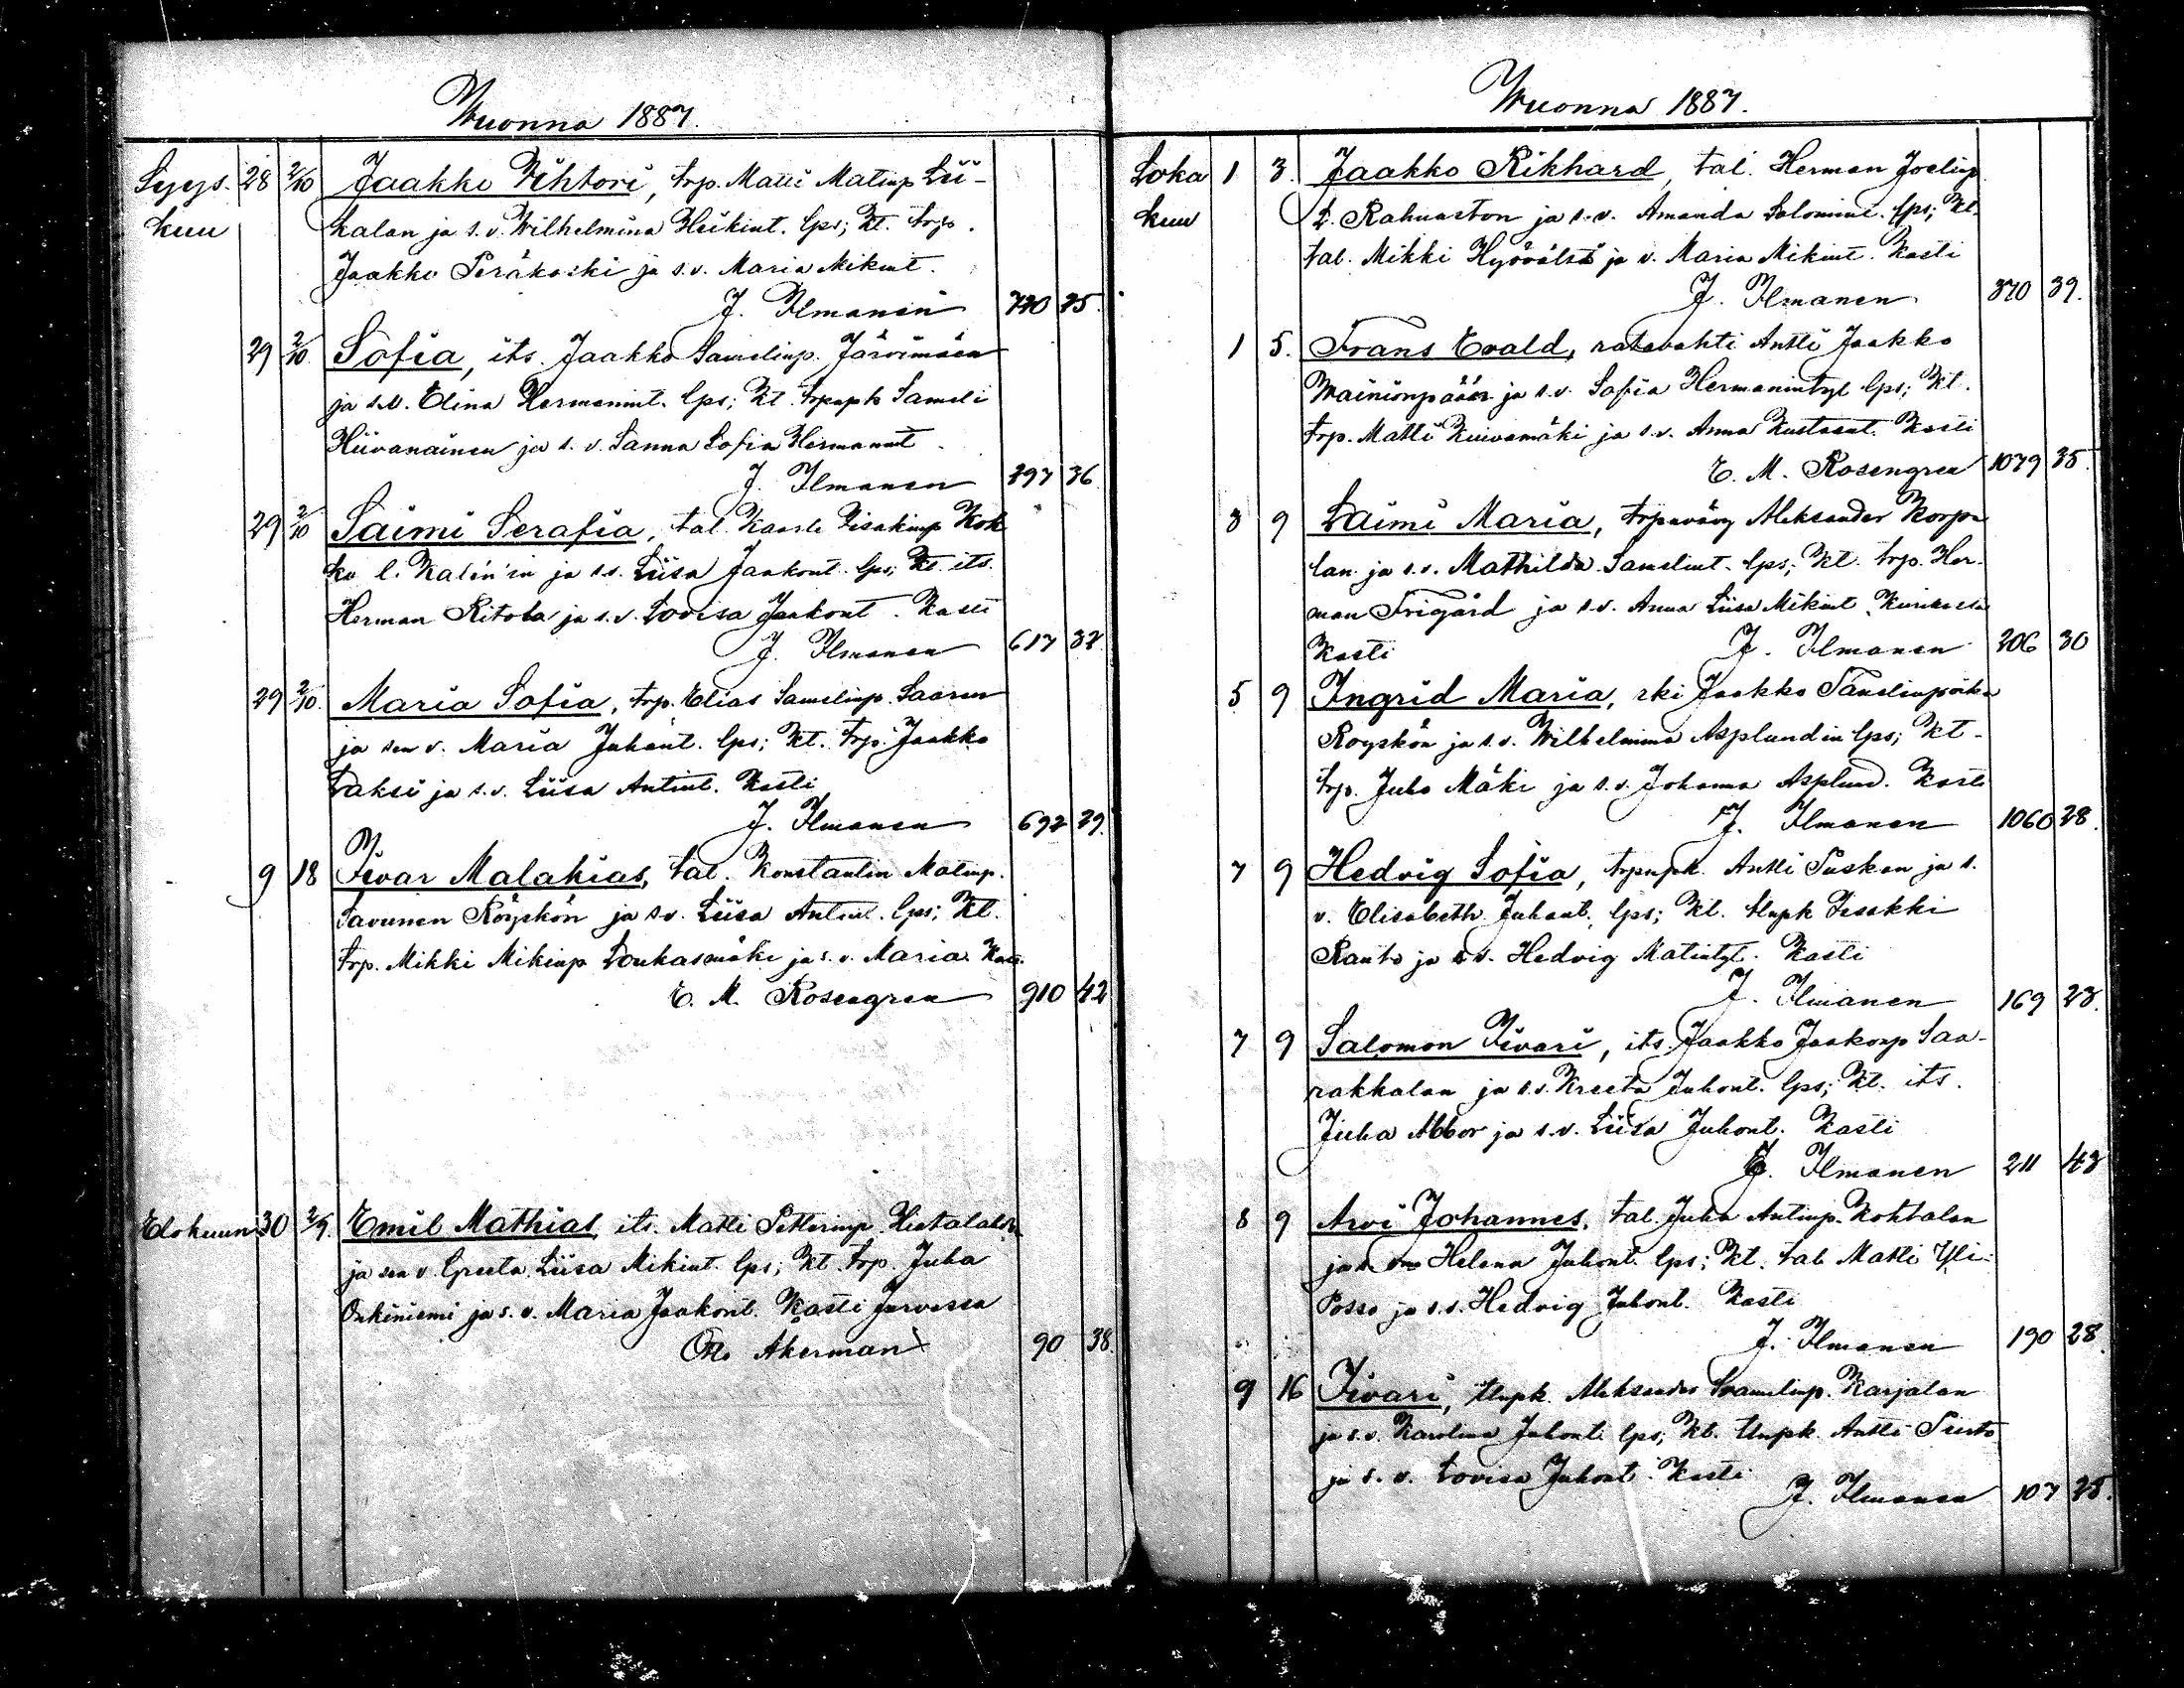 Wuonna 1887.
Syys- 28 2/10 Jaakko Vihtori, trp. Matti Matinp Lii-
kuu kalan ja s.v. Wilhelmina Heikint. lps; Kt. trp.
Jaakko Peräkoski ja s.v. Maria Mikint.
J. Ilmanen 720 25.
29 2/10. Sofia, its. Jaakko Samelinp. Järvimäen
ja s.v. Elina Hermanint. lps; Kt. trpnpk Sameli
Hiivanainen ja s.v. Sanna Sofia Hermanint.
J. Ilmanen 297 36.
29 2/10 Saimi Serafia, tal. Kaarle Iisakinp Kok
ko l. Kalin'in ja s.v. Liisa Jaakont. lps; Kt. its.
Herman Ritola ja s.v. Lovisa Jaakont. Kasti
J. Ilmanen 617 32.
29 2/10. Maria Sofia, trp. Elias Samelinp. Saaren
ja sen v. Maria Juhant. lps; Kt. trp. Jaakko
Laksi ja s.v. Liisa Antint. Kasti
J. Ilmanen 692 29.
9 18 Iivar Malakias, tal. Konstantin Matinp.
Savunen Röyskön ja s.v. Liisa Antint. lps; Kt.
trp. Mikki Mikinp Loukasmäki ja s.v. Maria Kas.
E. M. Rosengren 910 42
Elokuun 30 2/9. Emil Mathias, its. Matti Petterinp. Hietalahden
ja sen v. Greeta Liisa Mikint. lps; Kt. trp. Juha
Onkiniemi ja s.v. Maria Jaakont. Kasti Jurvassa
Otto Åkerman 90 38.
Wuonna 1887.
Loka 1 3. Jaakko Rikhard, tal. Herman Joelinp
kuu L. Rahnaston ja s.v. Amanda Salomint. lps; Kt.
tal. Mikki Hyövälti ja v. Maria Mikint. Kasti
J. Ilmanen 370 39.
1 5. Frans Evald, ratavahti Antti Jaakko
Wainionpään ja s.v. Sofia Hermanintyt lps; Kt.
trp. Matti Kuivamäki ja s.v. Anna Kustaant. Kasti
E. M. Rosengren 1079 35.
3 9 Laimi Maria, trpnvävy Aleksander Korpa
lan ja s.v. Mathilda Samelint. lps; Kt. trp. Her-
man Frigård ja s.v. Anna Liisa Mikint Kurikasta
Kasti J. Ilmanen 206 30
5 9 Ingrid Maria, rki Jaakko Samelinpoika
Royskön ja s.v. Wilhelmina Asplundin lps; Kt.
trp. Juho Mäki ja s.v. Johanna Asplund. Kasti
J. Ilmanen 1060 28.
7 9 Hedvig Sofia, trpnpk. Antti Puskan ja s.
v. Elisabeth Juhant. lps; Kt. tlnpk Iisakki
Ranto ja s.v. Hedvig Matintyt. Kasti
J. Ilmanen 169 23.
7 9 Salomon Iivari, its. Jaakko Jaakonp Saa-
rakkalan ja s.v. Kreeta Juhont. lps; Kt. its.
Juha Abbor ja s.v. Liisa Juhont. Kasti
J. Ilmanen 211 43
8 9 Arvi Johannes, tal. Juha Antinp. Kohtalan
ja Helena Juhont. lps; Kt. tal. Matti Yli-
Posso ja s.v. Hedvig Juhont. Kasti
J. Ilmanen 190 28.
9 16 Iivari, tlnpk. Aleksander Samelinp. Karjalan
ja s.v. Karolina Juhont. lps; Kt. tlnpk. Antti Siirto
ja s.v. Lovisa Juhont. Kasti
J. Ilmanen 107 25.